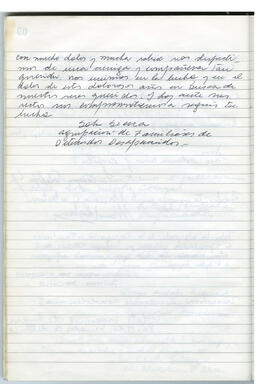 con mucho dolor y mucha rabia nos despedi-
mos de una amiga y compañera tan
querida. nos unimos en la lucha y en el
dolor de estos dolorosos años en busca de
nuestros seres queridos. Y hoy ante sus
restos nos comprometemos a seguir tu
lucha
Sola Sierra
Agrupación de Familiares de
Detenidos Desaparecidos.-